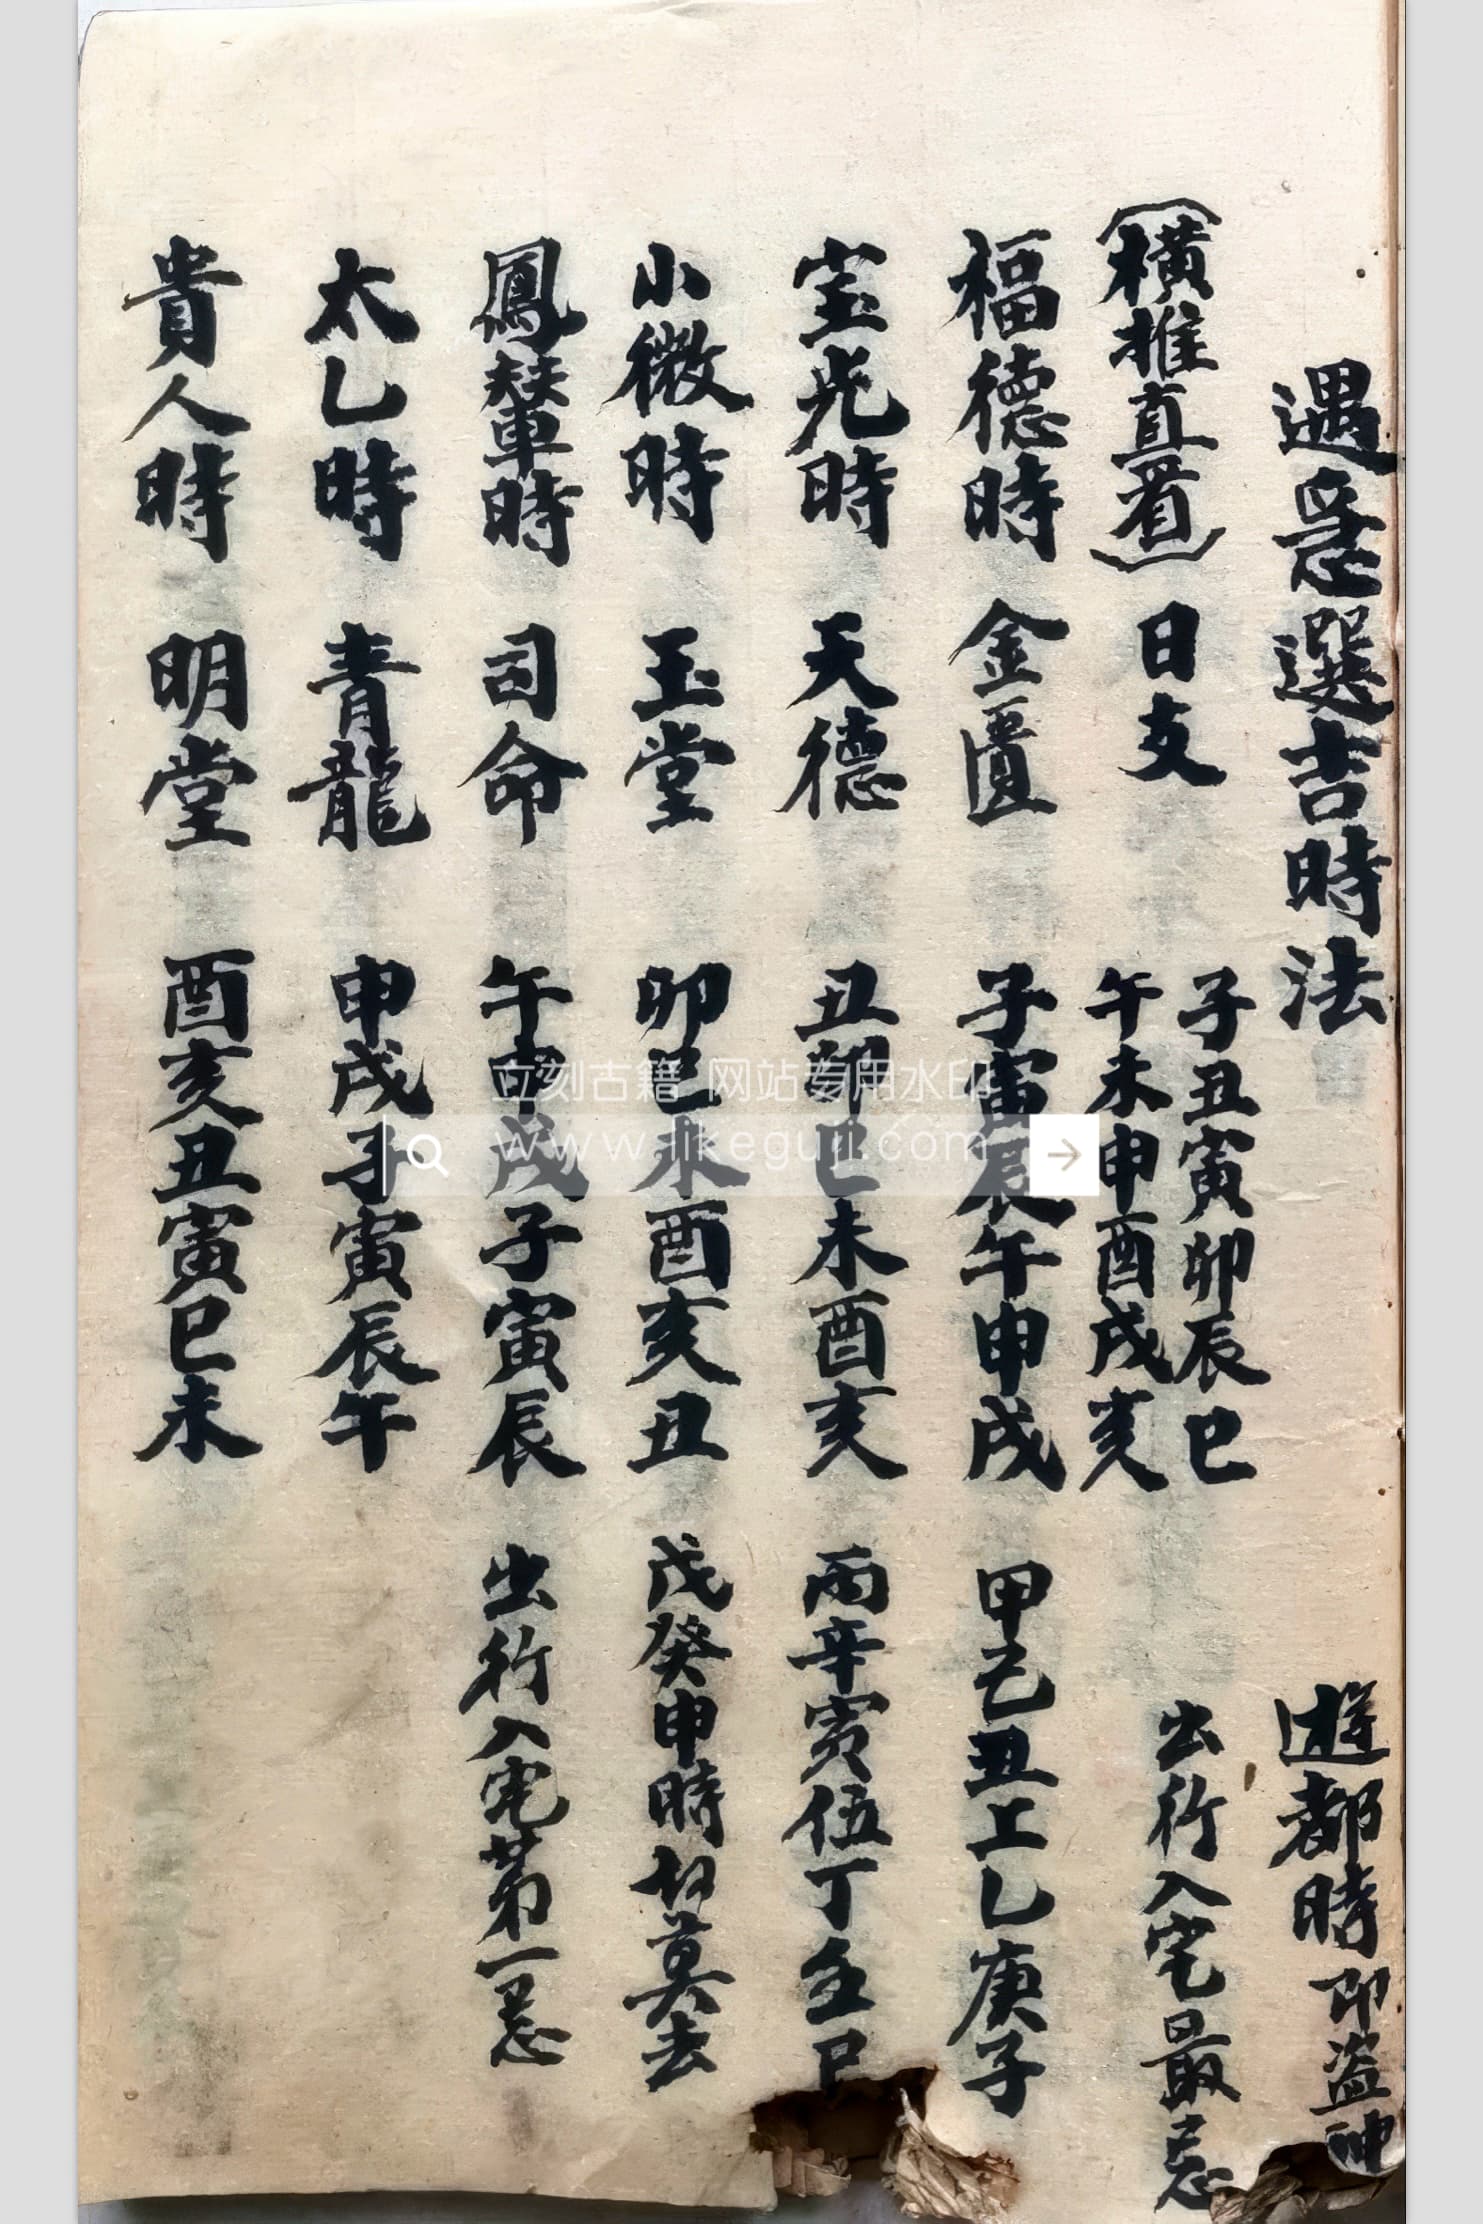 遇急選吉時法
遊都時 即盗神
(橫推直看) 日支 子丑寅卯辰巳
午未申酉戌亥
出行入宅最忌
福德時 金匱 子寅辰午申戌 甲己丑上乙庚子
宝光時 天德 丑卯巳未酉亥 丙辛寅伍丁壬巳
少微時 玉堂 卯巳未酉亥丑 戊癸申時切莫去
鳳輦時 司命 午申戌子寅辰 出行入宅第一忌
太乙時 青龍 申戌子寅辰午
貴人時 明堂 酉亥丑寅巳未
立刻古籍 网站专用水印
www.likeguji.com